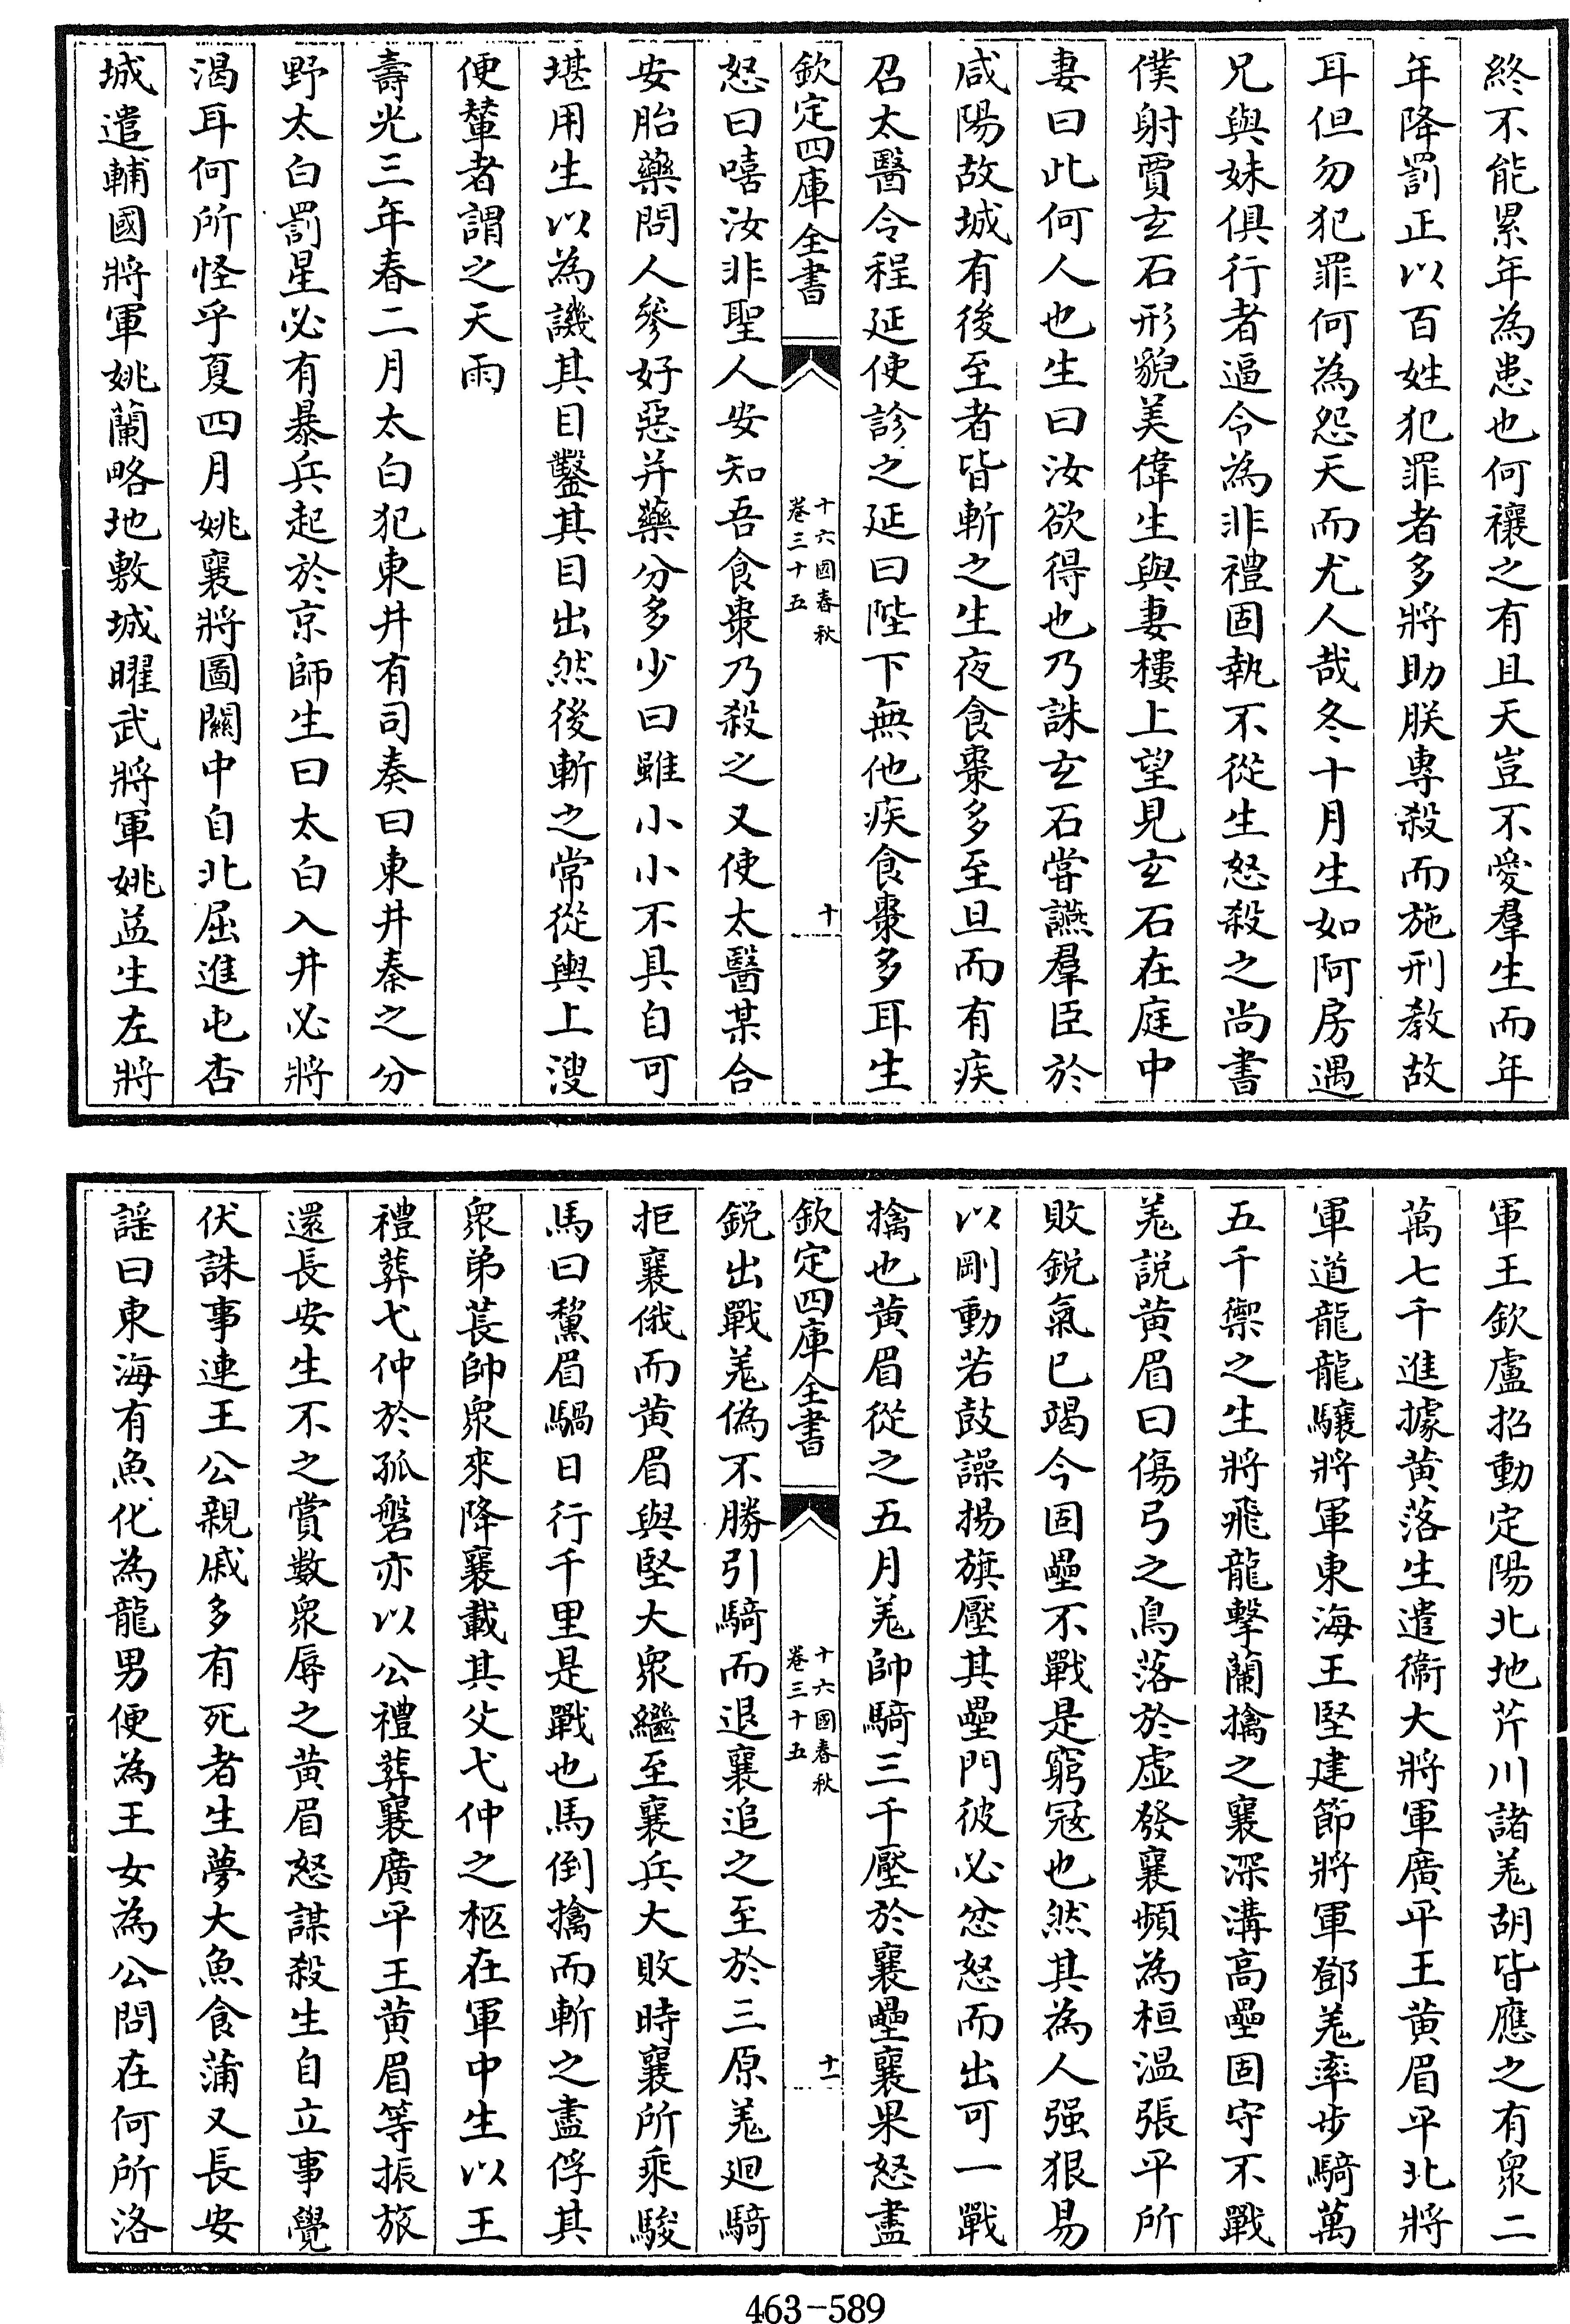 終不能累年為患也何禳之有且天豈不愛羣生而年
年降罰正以百姓犯罪者多將助朕專殺而施刑教故
耳但勿犯罪何為怨天而尤人哉冬十月生如阿房遇
兄與妹俱行者逼令為非禮固執不從生怒殺之尚書
僕射賈玄石形貌美偉生與妻樓上望見玄石在庭中
妻曰此何人也生曰汝欲得也乃誅玄石嘗讌羣臣於
咸陽故城有後至者皆斬之生夜食棗多至旦而有疾
召太醫令程延使診之延曰陛下無他疾食棗多耳生
欽定四庫全書
十六國春秋
卷三十五
十
怒曰嘻汝非聖人安知吾食棗乃殺之又使太醫某合
安胎藥問人參好惡并藥分多少曰雖小小不具自可
堪用生以為譏其目鑿其目出然後斬之常從輿上溲
便輦者謂之天雨
壽光三年春二月太白犯東井有司奏曰東井秦之分
野太白罰星必有暴兵起於京師生曰太白入井必將
渴耳何所怪乎夏四月姚襄將圖關中自北屈進屯杏
城遣輔國將軍姚蘭略地敷城曜武將軍姚益生左將
軍王欽盧招動定陽北地芹川諸羌胡皆應之有眾二
萬七千進據黃落生遣衞大將軍廣平王黃眉平北將
軍道龍龍驤將軍東海王堅建節將軍鄧羌率步騎萬
五千禦之生將飛龍擊蘭擒之襄深溝高壘固守不戰
羌說黃眉曰傷弓之鳥落於虛發襄頻為桓温張平所
敗銳氣已竭今固壘不戰是窮寇也然其為人强狠易
以剛動若鼓譟揚旗壓其壘門彼必忿怒而出可一戰
擒也黃眉從之五月羌帥騎三千壓於襄壘襄果怒盡
欽定四庫全書
十六國春秋
卷三十五
十一
銳出戰羌偽不勝引騎而退襄追之至於三原羌迴騎
拒襄俄而黃眉與堅大眾繼至襄兵大敗時襄所乘駿
馬曰黧眉騧日行千里是戰也馬倒擒而斬之盡俘其
眾弟萇帥眾來降襄載其父弋仲之柩在軍中生以王
禮葬弋仲於孤磐亦以公禮葬襄廣平王黃眉等振旅
還長安生不之賞數眾辱之黃眉怒謀殺生自立事覺
伏誅事連王公親戚多有死者生夢大魚食蒲又長安
謡曰東海有魚化為龍男便為王女為公問在何所洛
463-589